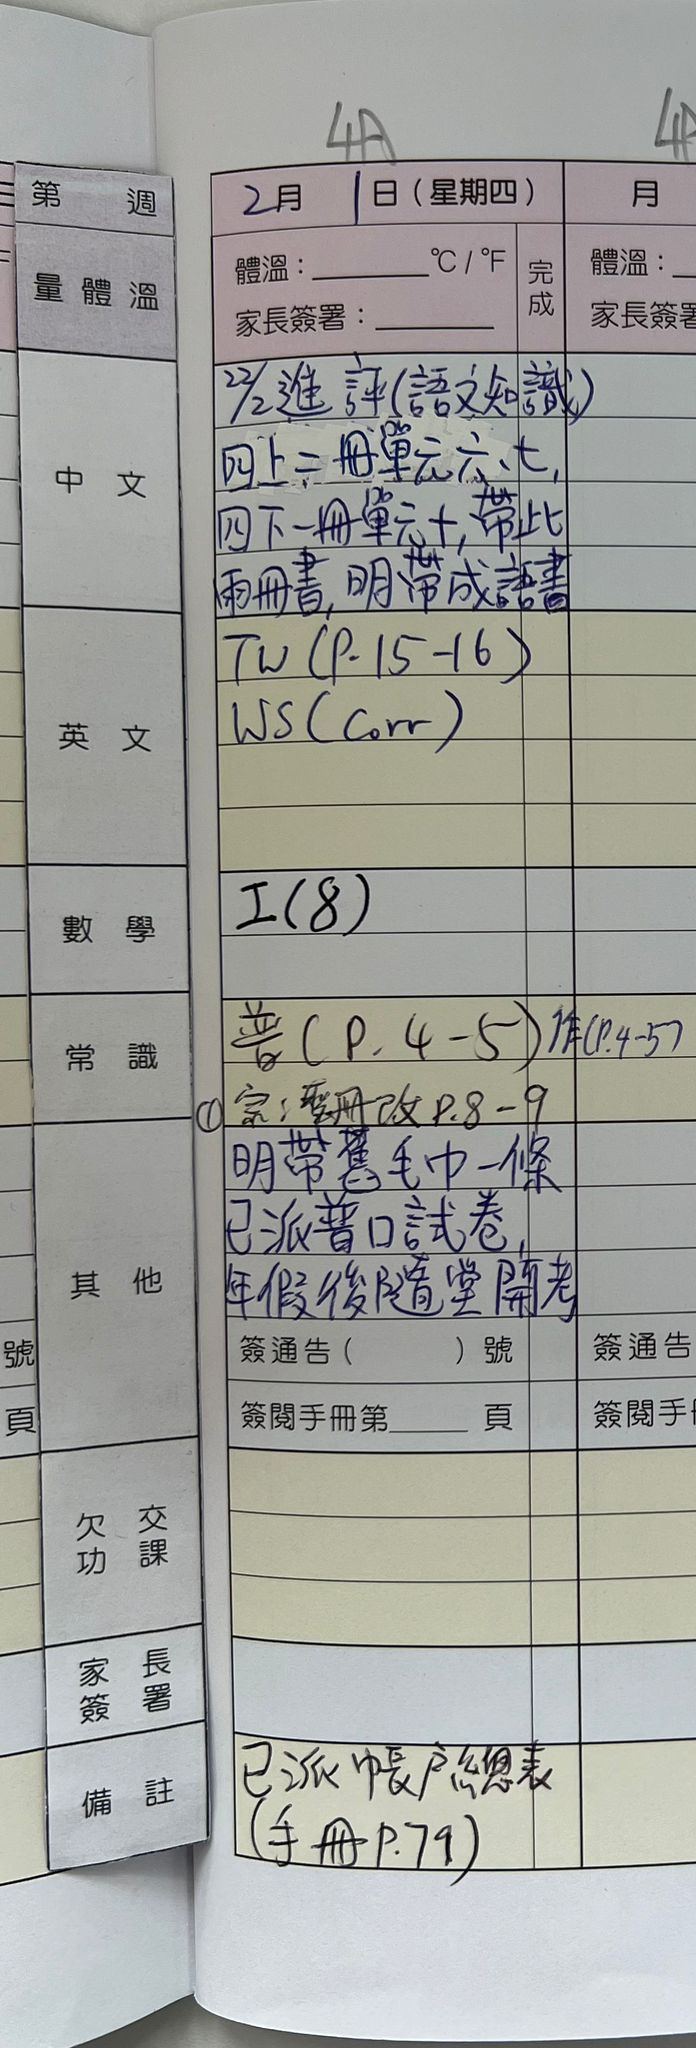 4A
第 週
2月 1日（星期四）
月
量體溫
體溫：______℃/℉
完成
體溫：
家長簽署：______
家長簽署
中文
22/2進評(語文知識)
四上二冊單元六、七,
四下一冊單元十,帶此
兩冊書,明帶成語書
英文
TW(P.15-16)
WS(Corr)
數學
工(8)
常識
普(P.4-5) 作(P.4-5)
改P.8-9
其他
明帶舊毛巾一條
已派普口試卷,
年假後隨堂開考
號
簽通告（ ）號
簽通告
頁
簽閱手冊第____頁
簽閱手冊
欠交功課
家長簽署
備註
已派帳戶總表
(手冊P.79)